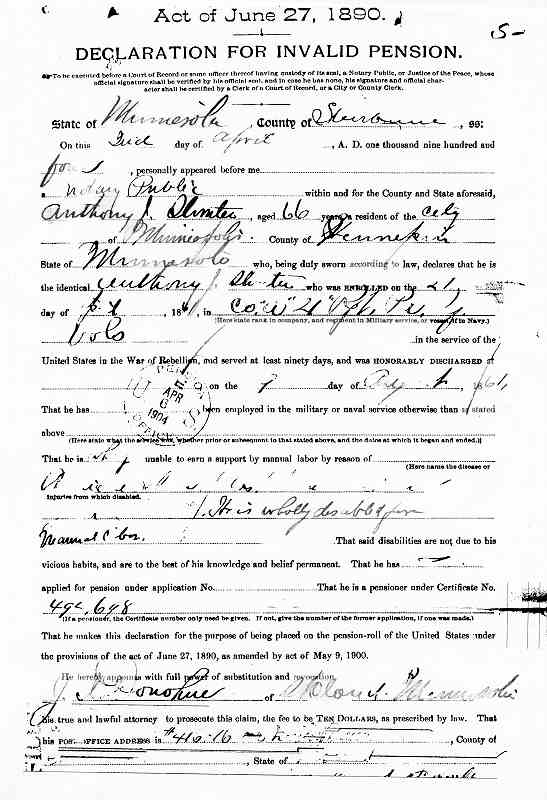 Act of June 27, 1890.
5-
DECLARATION FOR INVALID PENSION.
To be executed before a Court of Record or some officer thereof having custody of its seal, a Notary Public, or Justice of the Peace, whose
official signature shall be verified by his official seal, and in case he has none, his signature and official char-
acter shall be certified by a Clerk of a Court of Record, or a City or County Clerk.
State of Minnesota, County of , ss:
On this day of April, A. D. one thousand nine hundred and
four, personally appeared before me
a Notary Public within and for the County and State aforesaid,
Anthony J. , aged 66 years, a resident of the City
of Minneapolis. County of Hennepin
State of Minnesota who, being duly sworn according to law, declares that he is
the identical Anthony J. who was ENROLLED on the 21,
day of , 186, in Co.
(Here state rank in company, and regiment in Military service, or vessel if in Navy.)
Vols in the service of the
United States in the War of Rebellion, and served at least ninety days, and was HONORABLY DISCHARGED at
on the day of , 186
PENSION OFFICE
U S
APR
6
1904
That he has been employed in the military or naval service otherwise than as stated
above
(Here state what the service was, whether prior or subsequent to that stated above, and the dates at which it began and ended.)
That he is unable to earn a support by manual labor by reason of
(Here name the disease or
injuries from which disabled.
He is wholly disabled from
Manual labor. That said disabilities are not due to his
vicious habits, and are to the best of his knowledge and belief permanent. That he has
applied for pension under application No. That he is a pensioner under Certificate No.
492,648
(If a pensioner, the Certificate number only need be given. If not, give the number of the former application, if one was made.)
That he makes this declaration for the purpose of being placed on the pension-roll of the United States under
the provisions of the act of June 27, 1890, as amended by act of May 9, 1900.
He hereby appoints with full power of substitution and revocation,
Donohue of St Cloud, Minnesota
his true and lawful attorney to prosecute this claim, the fee to be TEN DOLLARS, as prescribed by law. That
his POST OFFICE ADDRESS is #410-16 , County of
, State of